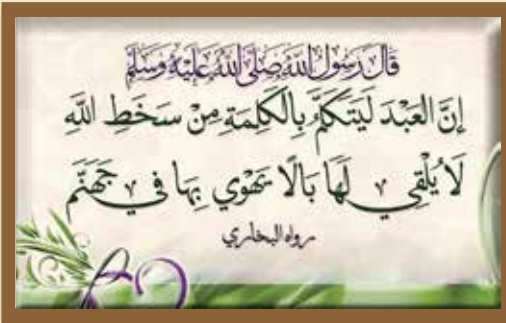 قَالَ رَسُولُ اللَّهِ صَلَّى اللَّهُ عَلَيْهِ وَسَلَّمَ
إِنَّ الْعَبْدَ لَيَتَكَلَّمُ بِالْكَلِمَةِ مِنْ سَخَطِ اللَّهِ
لَا يُلْقِي لَهَا بَالًا يَهْوِي بِهَا فِي جَهَنَّمَ
رواه البخاري